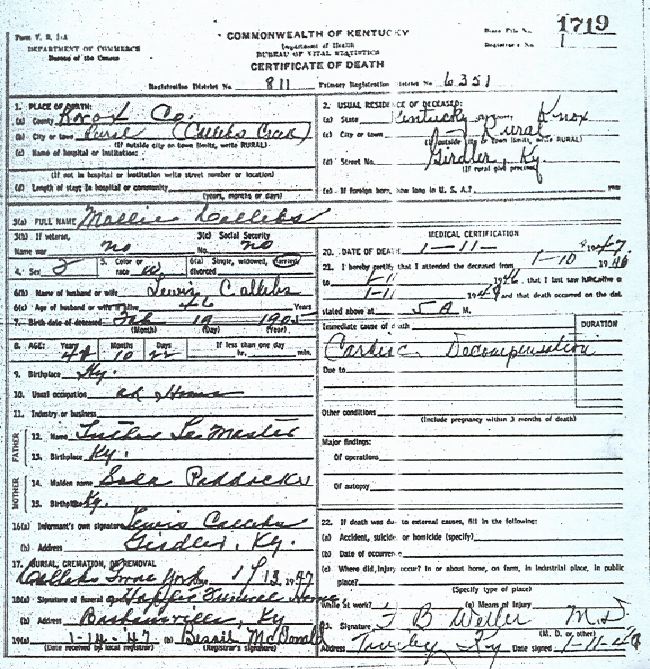 1719
Form V. S. 1-A
DEPARTMENT OF COMMERCE
Bureau of the Census
COMMONWEALTH OF KENTUCKY
Department of Health
BUREAU OF VITAL STATISTICS
CERTIFICATE OF DEATH
State File No.
Registrar's No. 1
Registration District No. 811 Primary Registration District No. 6351
1. PLACE OF DEATH:
(a) County Knox Co.
(b) City or town Rural
(If outside city or town limits, write RURAL)
(c) Name of hospital or institution:
(If not in hospital or institution write street number or location)
(d) Length of stay: In hospital or community
(years, months or days)
2. USUAL RESIDENCE OF DECEASED:
(a) State Kentucky Knox
(c) City or town Rural
(If outside city or town limits, write RURAL)
(d) Street No. Girdler, Ky.
(If rural give precinct)
(e) If foreign born, how long in U. S. A.? year
3(a) FULL NAME Mallie Callebs
3(b) If veteran, 3(c) Social Security
Name war no No. no
4. Sex F 5. Color or race W. 6(a) Single, widowed, married, divorced
6(b) Name of husband or wife Lewis Callebs
6(c) Age of husband or wife if alive 46 Years
7. Birth date of deceased Feb 19 1905
(Month) (Day) (Year)
8. AGE: Years Months Days If less than one day
10 22 hr. min.
9. Birthplace Ky.
10. Usual occupation at Home
11. Industry or business
FATHER
12. Name Luther Le Master
13. Birthplace Ky.
MOTHER
14. Maiden name Paddocks
15. Birthplace Ky.
16(a) Informant's own signature Lewis Callebs
(b) Address Girdler, Ky.
17. BURIAL, CREMATION, OR REMOVAL
Callebs Grave Yard Date 1/13 1947
18(a) Signature of funeral director Hopper Funeral Home
(b) Address Barbourville, Ky
19(a) 1-14-47 (b) Bessie McDonald
(Date received by local registrar) (Registrar's signature)
MEDICAL CERTIFICATION
20. DATE OF DEATH 1-11- 1947
21. I hereby certify that I attended the deceased from 1-10 1946
1-11 1946, that I last saw him/her alive on
1-11 and that death occurred on the date
stated above at 5 A M.
Immediate cause of death DURATION
Cardiac Decompensation
Due to
Other conditions
(Include pregnancy within 3 months of death)
Major findings:
Of operations
Of autopsy
22. If death was due to external causes, fill in the following:
(a) Accident, suicide or homicide (specify)
(b) Date of occurrence
(c) Where did injury occur? In or about home, on farm, in industrial place, in public
place?
(Specify type of place)
While at work? (e) Means of Injury
23. Signature B Weller M.D
(M. D. or other)
Address Ky Date signed 1-11-47